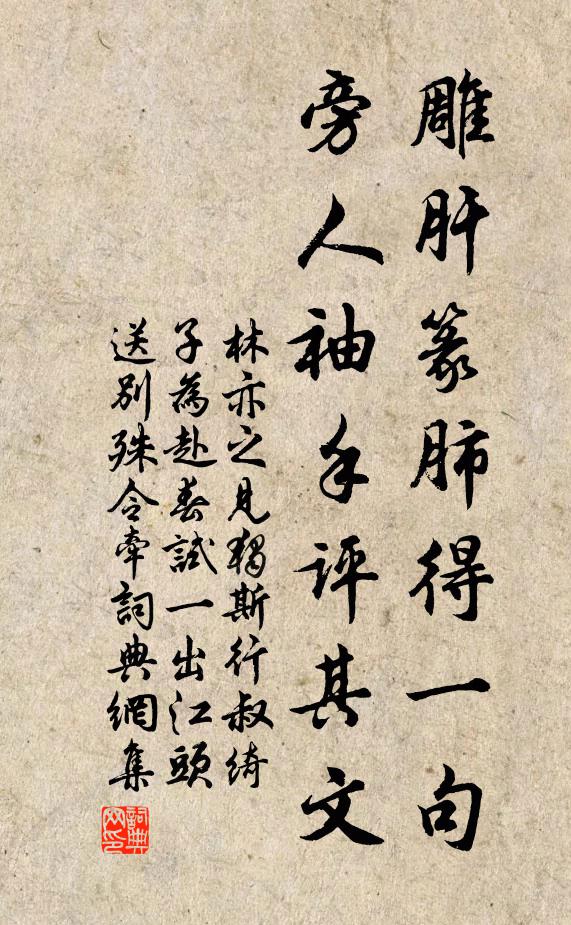 雕肝篆肺得一句
旁人袖手評其文
林亦之見獨斯行叔綺
子為赴春試一出江頭
送別殊令牽詞典網集
詞典网印